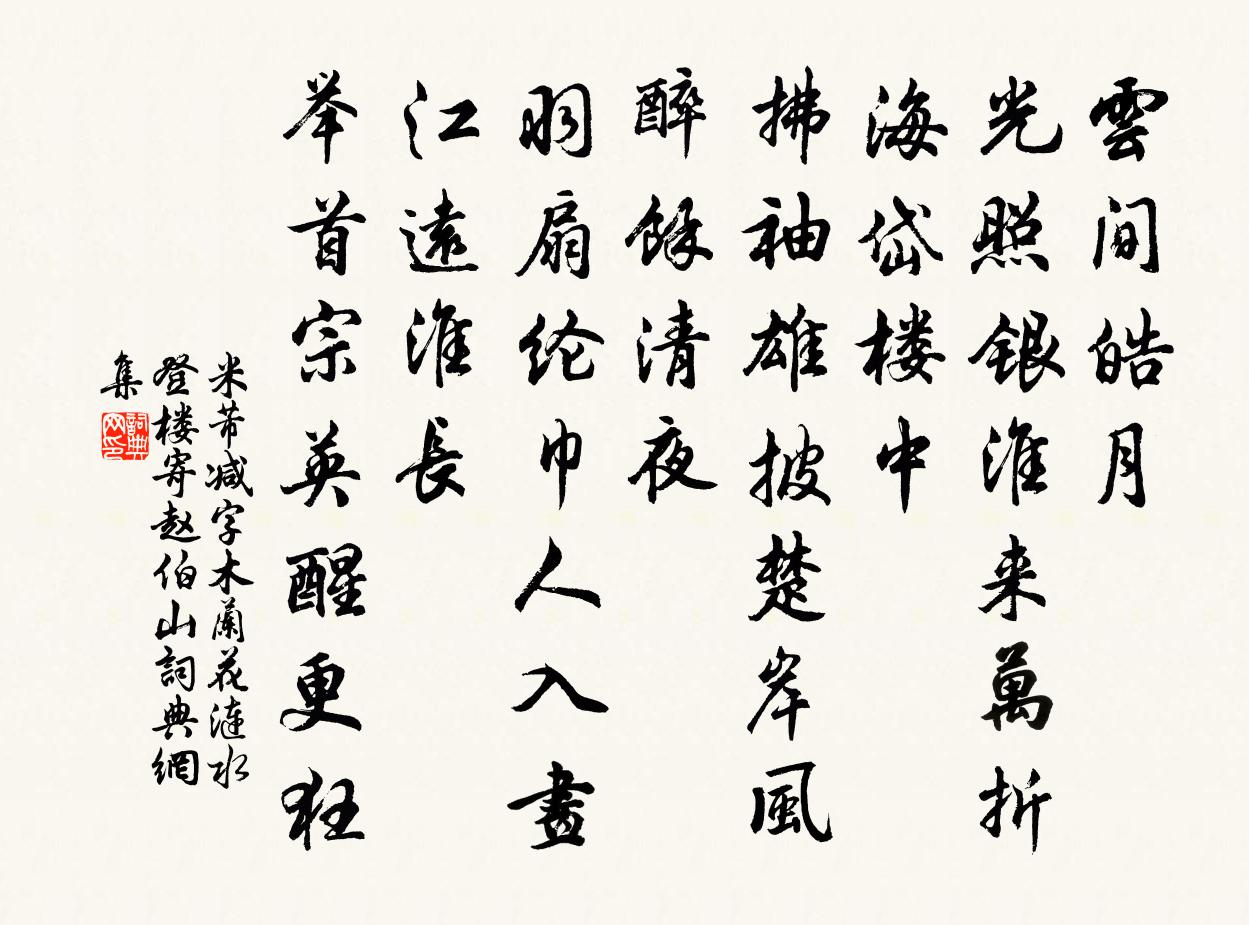 雲間皓月
光照銀淮来萬折
海岱楼中
拂袖雄披楚岸風
醉餘清夜
羽扇纶巾人入畫
江遠淮長
举首宗英醒更狂
米芾减字木蘭花涟水
登楼寄赵伯山詞典網
集
詞典网印